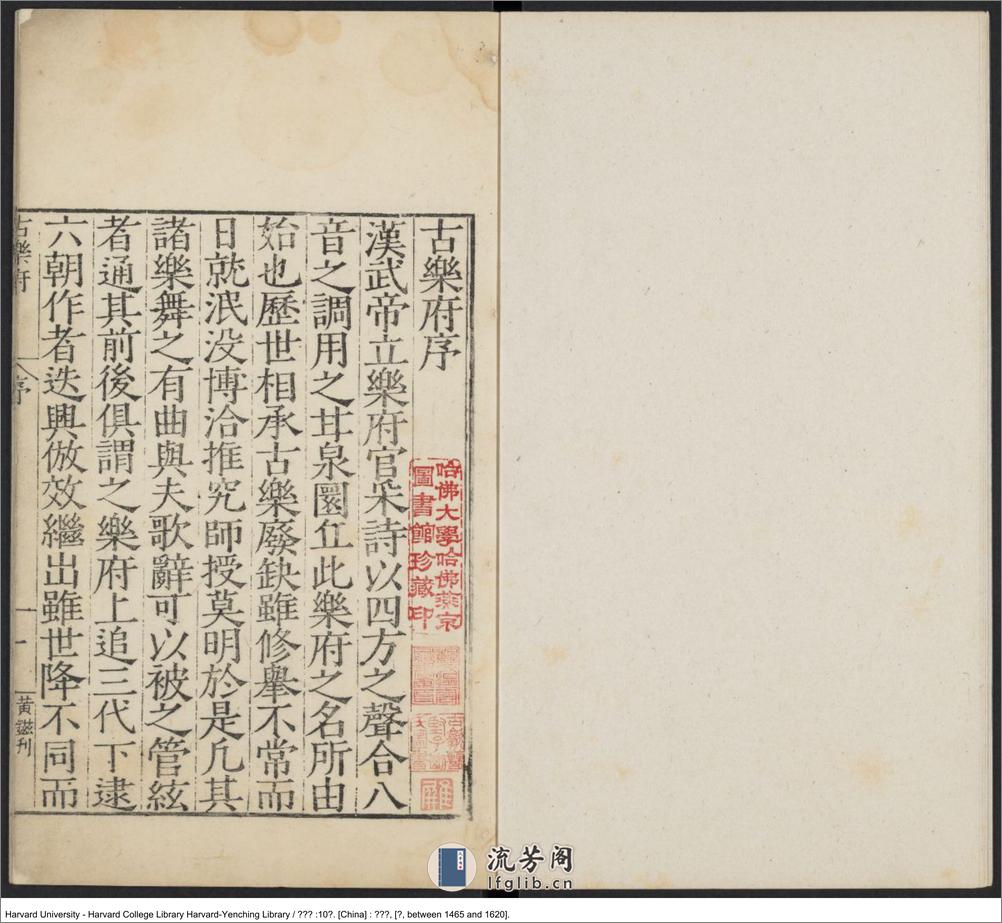 古樂府序
漢武帝立樂府官采詩以四方之聲合八
音之調用之甘泉圜丘此樂府之名所由
始也歷世相承古樂廢缺雖修舉不常而
日就泯没博洽推究師授莫明於是凢其
諸樂舞之有曲與夫歌辭可以被之管絃
者通其前後俱謂之樂府上追三代下逮
六朝作者迭興倣效繼出雖世降不同而
古樂府
序
一
黄鎡刊
哈佛大學哈佛燕京
圖書館珍藏印
流芳阁
lfglib.cn
Harvard University - Harvard College Library Harvard-Yenching Library / ??? :10?. [China] : ???, [?, between 1465 and 1620].